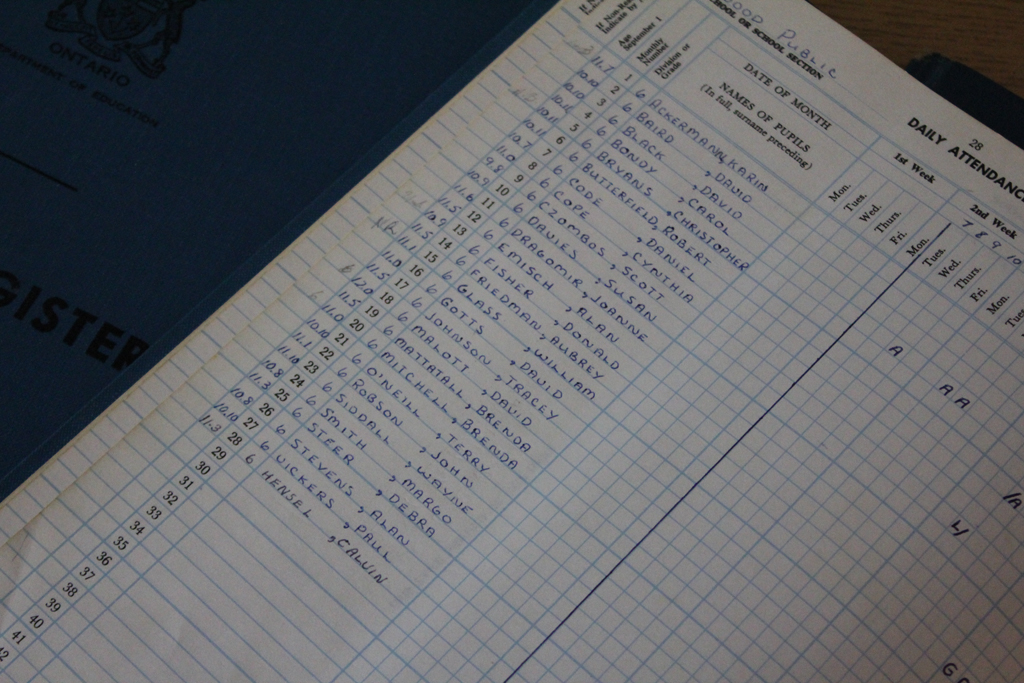 ONTARIO
DEPARTMENT OF EDUCATION
GISTER
OOD PUBLIC
SCHOOL OR SCHOOL SECTION
28
DAILY ATTENDANC
If Non-Res
Indicate by
Age September 1
Monthly Number
Division or Grade
DATE OF MONTH
NAMES OF PUPILS
(In full, surname preceding)
1st Week
2nd Week
7 8 9 10
Mon. Tues. Wed. Thurs. Fri. Mon. Tues. Wed. Thurs. Fri. Mon. Tues
11.7 1 6 ACKERMANN, KARIN
10.10 2 6 BAIRD, DAVID
10.10 3 6 BLACK, DAVID
10.11 4 6 BONDY, CAROL
10.11 5 6 BRYANS, CHRISTOPHER
10.11 6 6 BUTTERFIELD, ROBERT
10.7 7 6 CODE, DANIEL
11.0 8 6 COPE, CYNTHIA
9.8 9 6 CZOMBOS, SCOTT
10.9 10 6 DAVIES, SUSAN
11.6 11 6 DRAGOMIR, JOANNE
11.5 12 6 EMISCH, ALAN
10.9 13 6 FISHER, DONALD
11.5 14 6 FRIEDMAN, AUBREY
11.1 15 6 GLASS, WILLIAM
11.0 16 6 GOTTS, DAVID
11.5 17 6 JOHNSON, TRACEY
12.0 18 6 MALOT, DAVID
11.5 19 6 MAITATALL, BRENDA
11.0 20 6 MITCHELL, BRENDA
10.10 21 6 O'NEILL, TERRY
11.1 22 6 ROBSON, JOHN
11.10 23 6 SIDDALL, WAYNE
10.8 24 6 SMITH, MARGO
11.3 25 6 STEER, DEBRA
10.8 26 6 STEVENS, ALAN
10.10 27 6 VICKERS, PAUL
11.3 28 6 HENSEL, CALVIN
29
30
31
32
33
34
35
36
37
38
39
40
41
42
A
A A
/A
L/